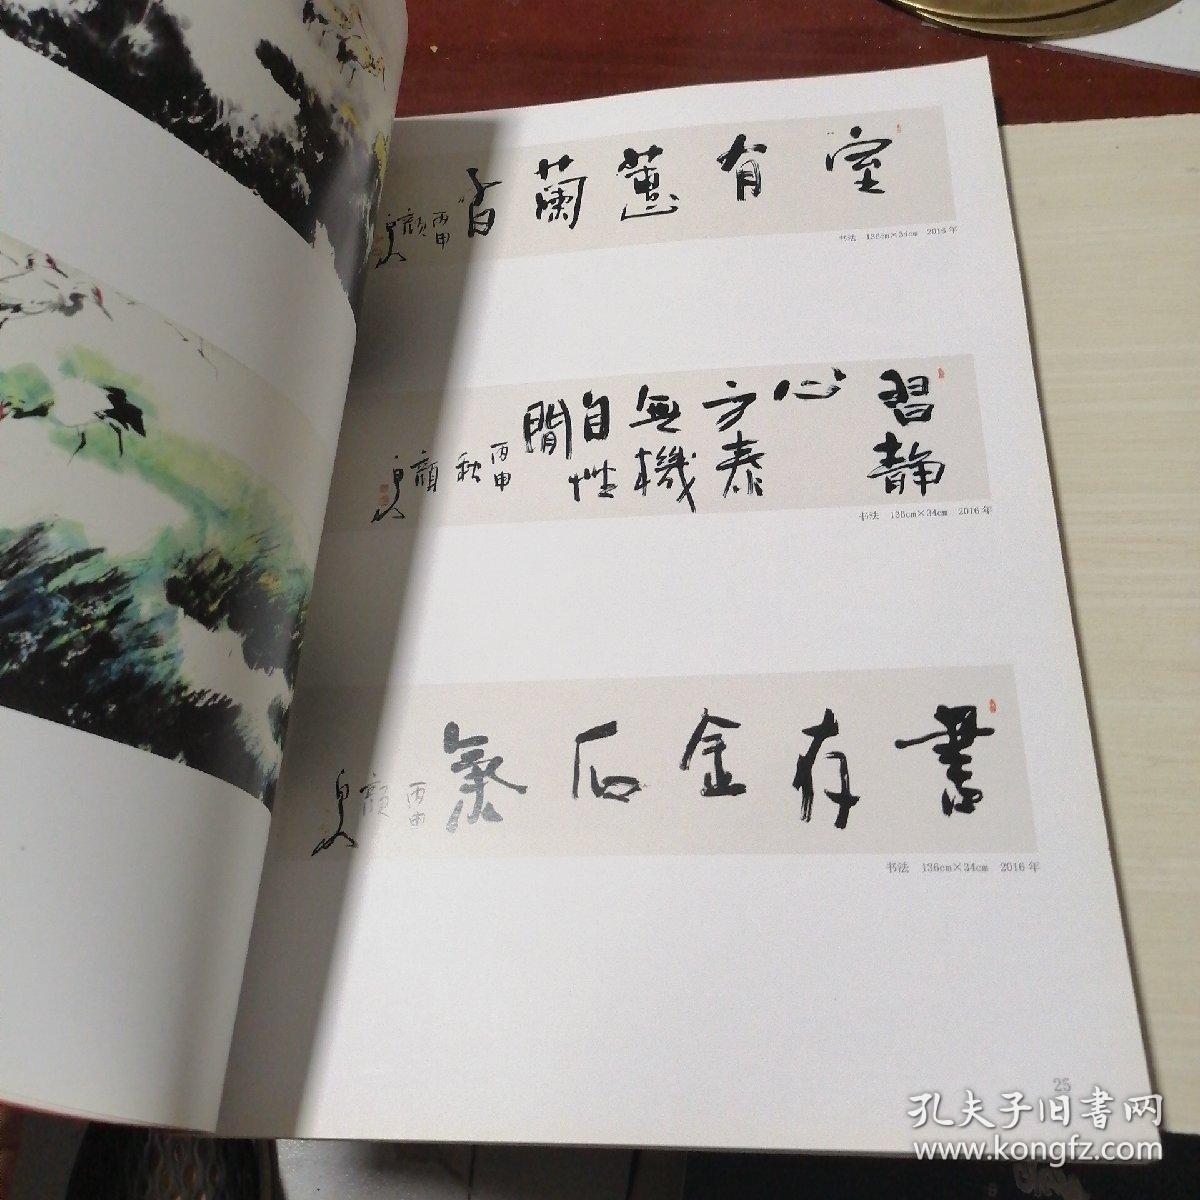 室有蕙蘭香
丙申
顔
书法 136cm×34cm 2016年
習靜心方泰無機性自閒
丙申秋
顔
书法 136cm×34cm 2016年
書存金石氣
丙申
顔
书法 136cm×34cm 2016年
25
孔夫子旧书网
www.kongfz.com